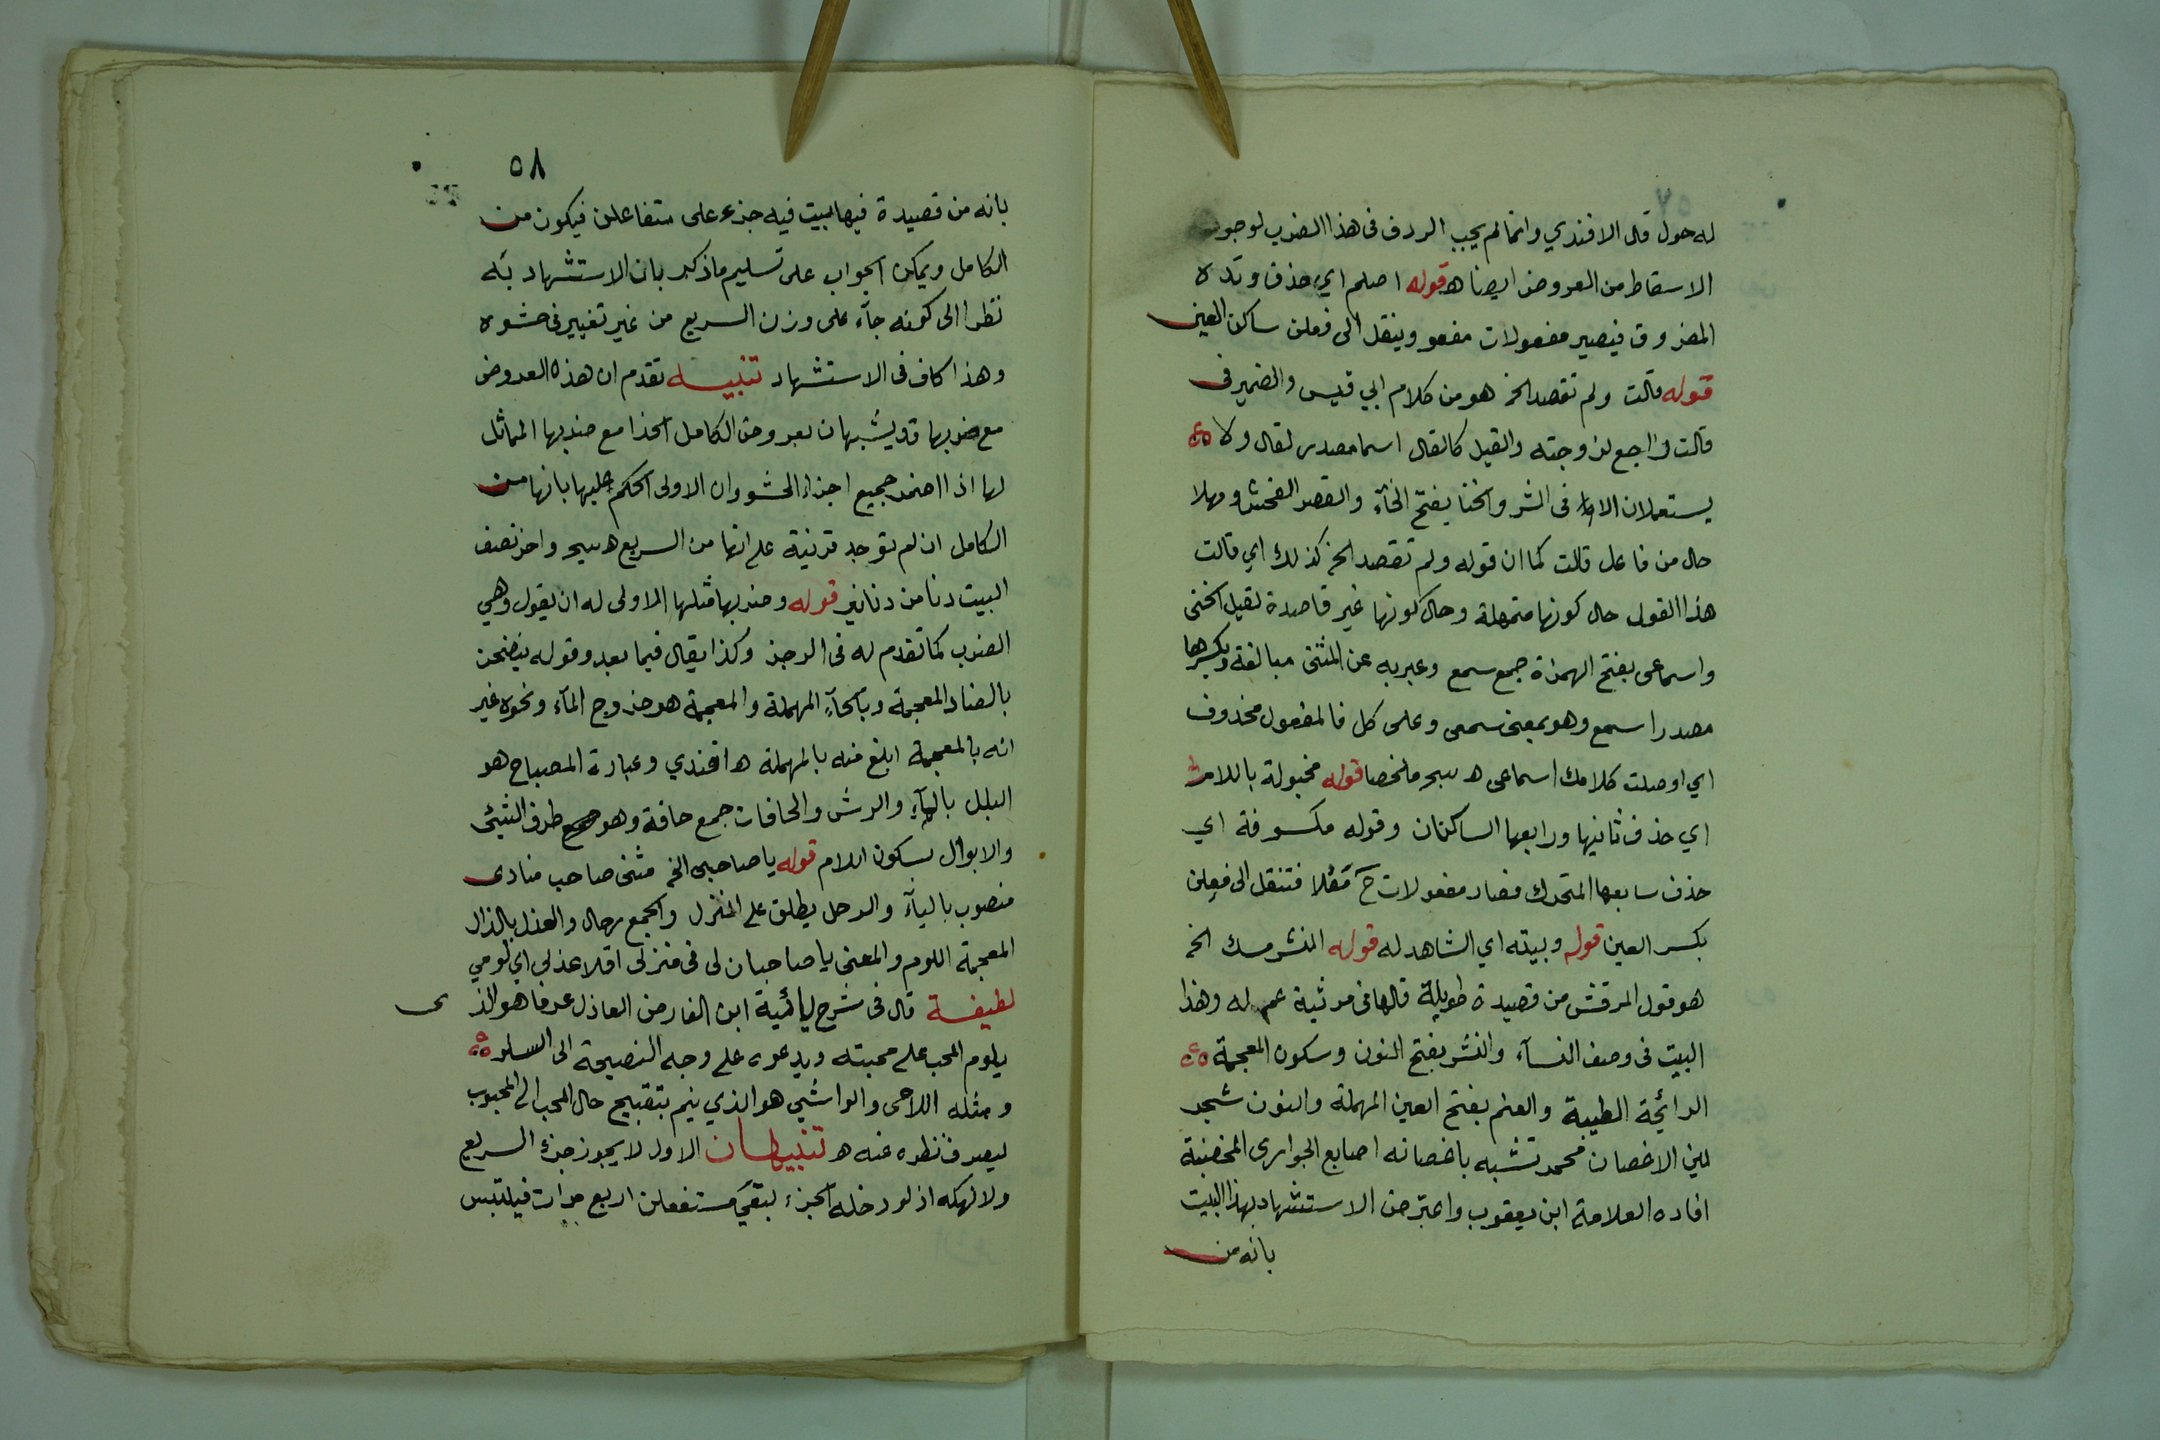 له حول قال الافندي وانما لم يجب الردف في هذا الضرب لوجود
الاسقاط من العروض ايضا اه قوله اصلم اي حذف وتده
المفروق فيصير مفعولات مفعو وينقل الى فعلن ساكن العين
قوله قالت ولم تقصد الخ هو من كلام ابي قيس والضمير في
قالت راجع لزوجته والقيل كالقال اسما مصدر لقال ولا
يستعملان الا في الشر والخنا بفتح الخآء والقصر الفحش ومهلا
حال من فاعل قالت كما ان قوله ولم تقصد الخ كذلك اي قالت
هذا القول حال كونها متمهلة وحال كونها غير قاصدة لقيل الخنى
واسماعى بفتح الهمزة جمع سمع وعبر به عن المثنى مبالغة وبكسرها
مصدر اسمع وهو بمعنى سمعى وعلى كل فالمفعول محذوف
اي اوصلت كلامك اسماعى اه سجر ملخصا قوله مخبولة باللام
اي حذف ثانيها ورابعها الساكنان وقوله مكسوفة اي
حذف سابعها المتحرك فصار مفعولات ح مَعُلا فتنقل الى فعِلن
بكسر العين قوله وبيته اي الشاهد له قوله النشر مسك الخ
هو قول المرقش من قصيدة طويلة قالها في مرثية عم له وهذا
البيت في وصف النسآء والنشر بفتح النون وسكون المعجمة
الرائحة الطيبة والعنم بفتح العين المهملة والنون شجر
لين الاغصان محمر تشبه باغصانه اصابع الجوارى المخضبة
افاده العلامة ابن يعقوب واعترض الاستشهاد بهذا البيت
بانه من
٥٨
بانه من قصيدة فيها بيت فيه جزء على متفاعلن فيكون من
الكامل ويمكن الجواب على تسليم ما ذكر بان الاستشهاد به
نظرا الى كونه جآء على وزن السريع من غير تغيير في حشوه
وهذا كاف في الاستشهاد تنبيه تقدم ان هذه العروض
مع ضربها قد يشبهان بعروض الكامل الحذا مع ضربها المماثل
لها اذا اضمر جميع اجزاء الحشو وان الاولى الحكم عليها بانها من
الكامل ان لم توجد قرينة على انها من السريع اه سجر واخر نصف
البيت دنا من دنانير قوله وضربها مثلها الاولى له ان يقول وهي
الضرب كما تقدم له في الرجز وكذا يقال فيما بعد وقوله ينضحن
بالضاد المعجمة وبالحآء المهملة والمعجمة هو خروج المآء ونحوه غير
انه بالمعجمة ابلغ منه بالمهملة اه افندي وعبارة المصباح هو
البلل بالمآء والرش والحافات جمع حافة وهو طرف الشيئ
والابوال بسكون اللام قوله يا صاحبى الخ مثنى صاحب منادى
منصوب باليآء والرحل يطلق على المنزل والجمع رحال والعذل بالذال
المعجمة اللوم والمعنى يا صاحبان لى في منزلى اقلا عذلى اي لومي
لطيفة قال في شرح يائية ابن الفارض العاذل عرفا هو الذى
يلوم المحب على محبته ويدعوه على وجه النصيحة الى السلو
ومثله اللاحى والواشي هو الذي ينم بتقبيح حال المحب الى المحبوب
ليصرف نظره عنه اه تنبيهان الاول لا يجوز جزء السريع
ولا نهكه اذ لو دخله الجزء لبقي مستفعلن اربع مرات فيلتبس